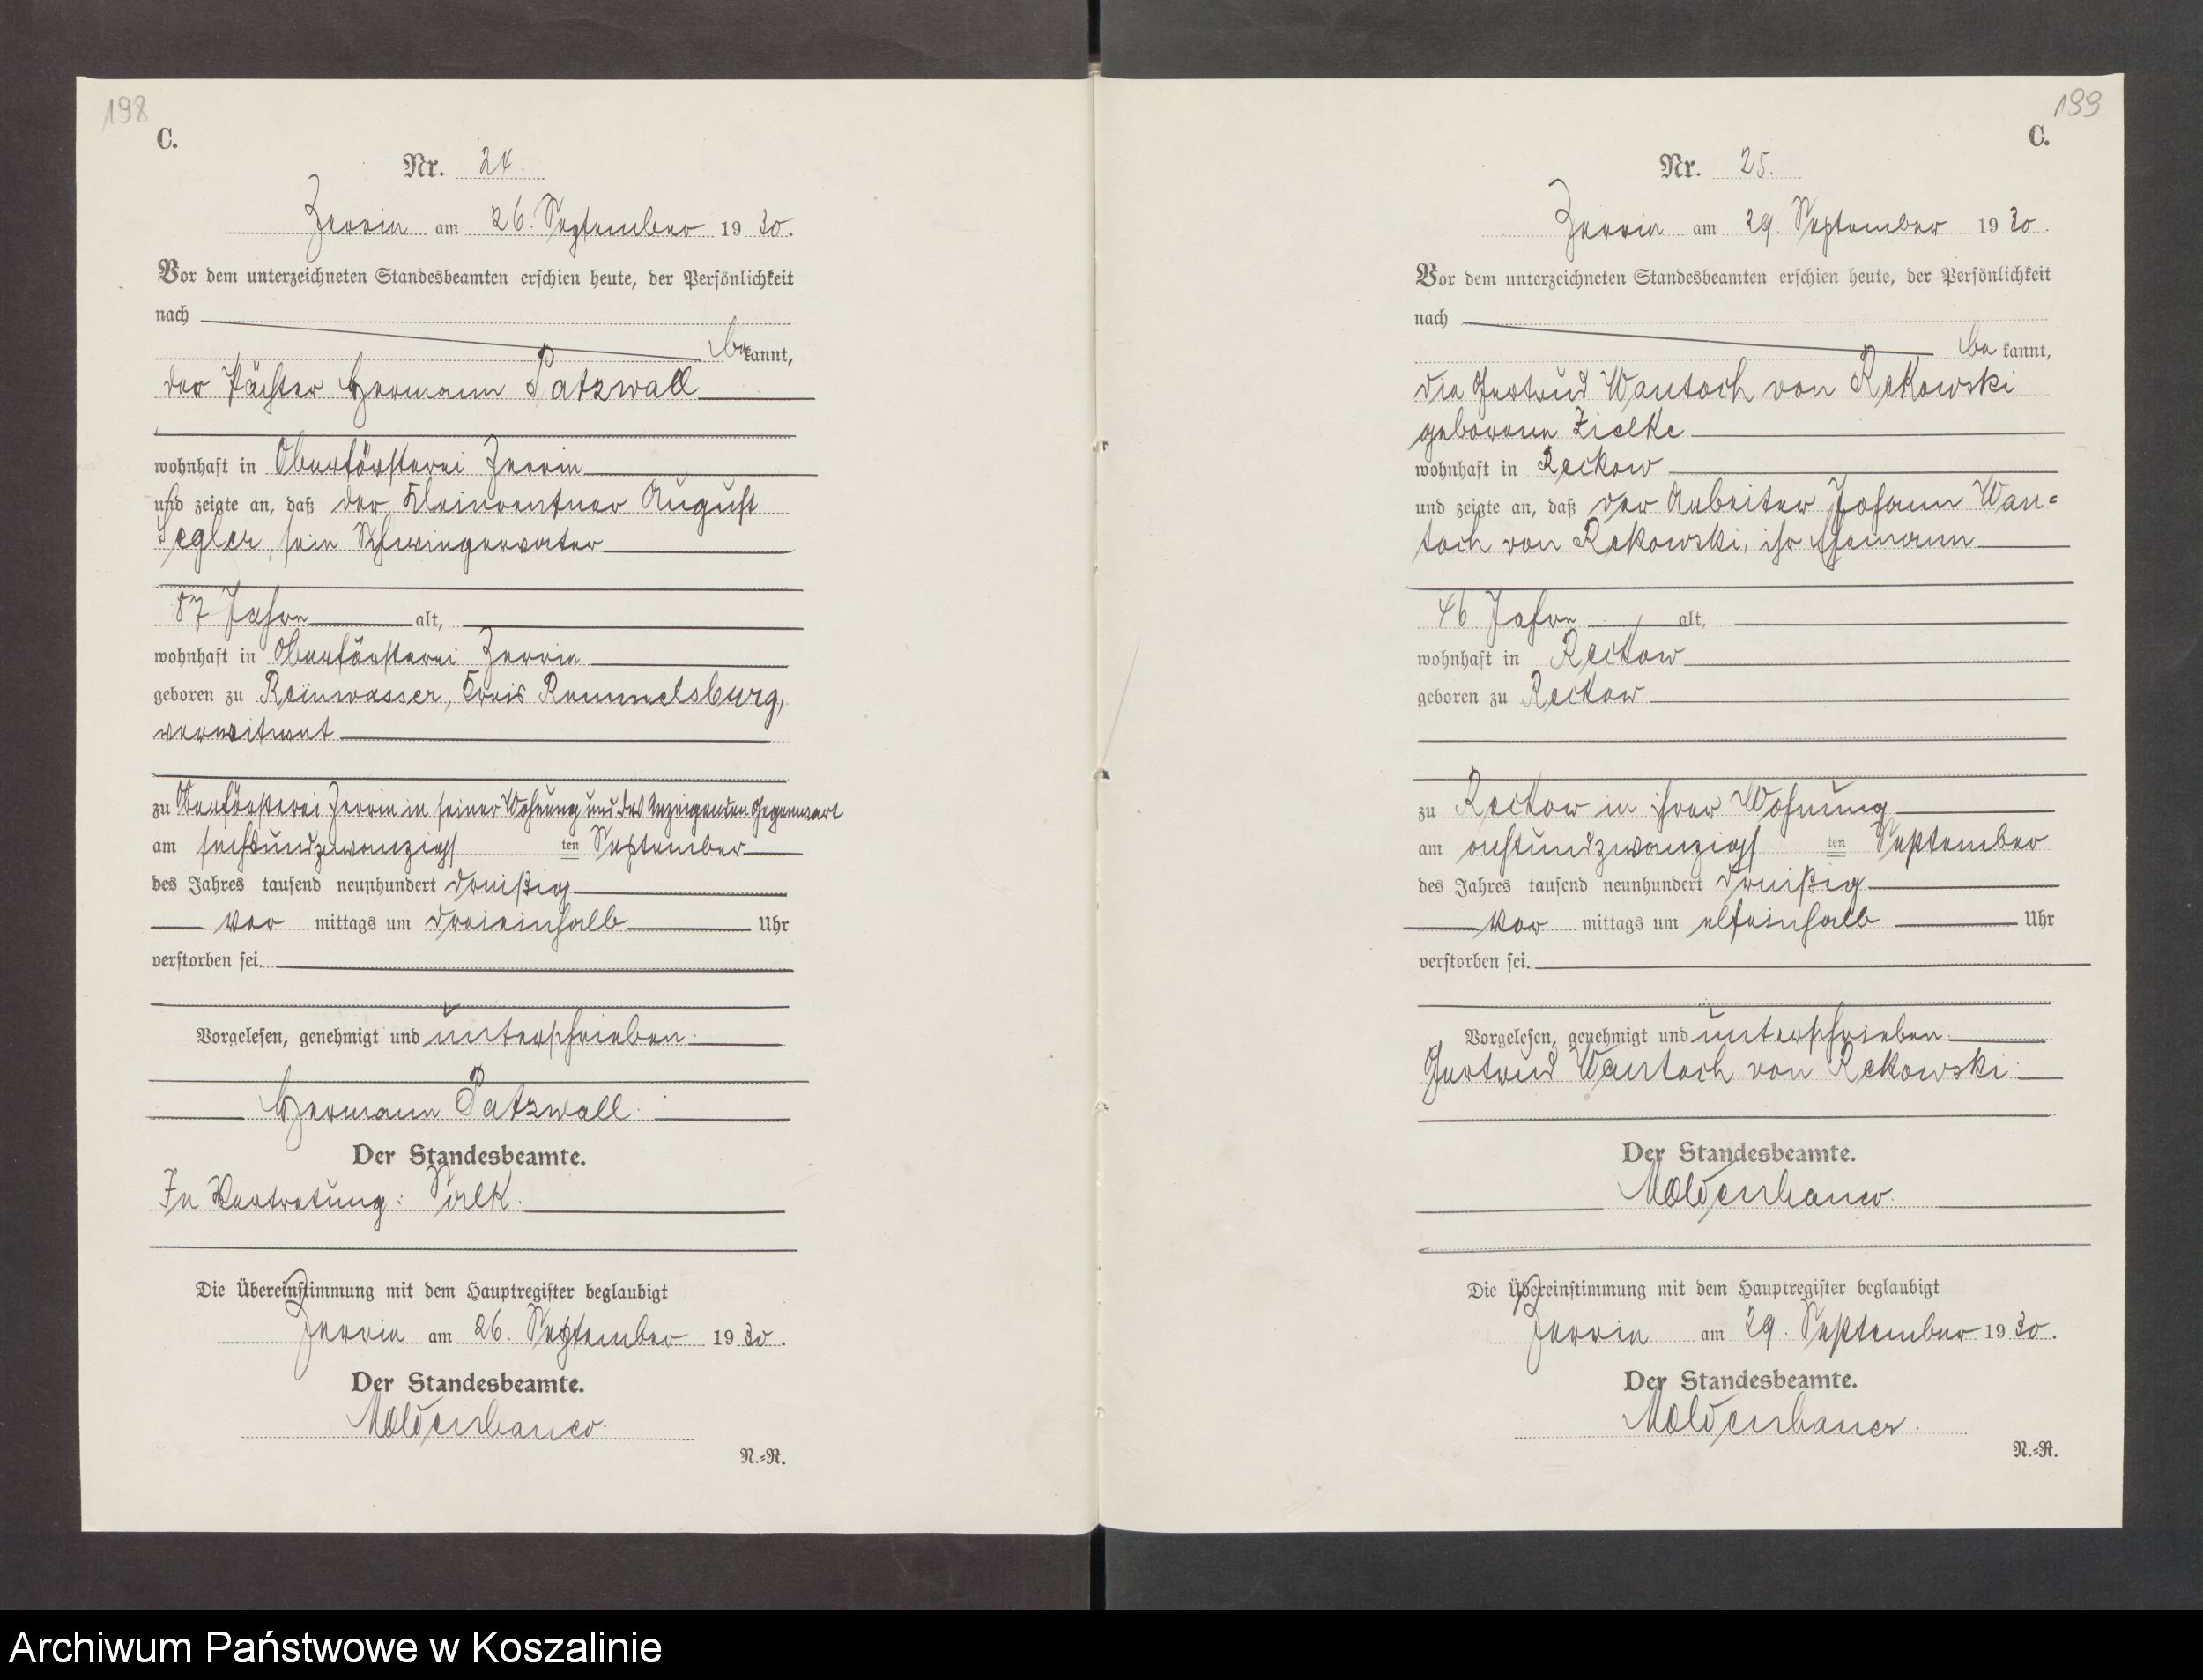 198
C.
Nr. 24.
Zerrin am 26. September 1930.
Vor dem unterzeichneten Standesbeamten erschien heute, der Persönlichkeit
nach
bekannt,
der Pächter Hermann Patzwall
wohnhaft in Oberförsterei Zerrin
und zeigte an, daß der Kleinrentner August
Segler, sein Schwiegervater
87 Jahre alt,
wohnhaft in Oberförsterei Zerrin
geboren zu Reinwasser, Kreis Rummelsburg,
verwitwet
zu Oberförsterei Zerrin in seiner Wohnung und des Anzeigenden Gegenwart
am sechsundzwanzigsten September
des Jahres tausend neunhundert dreißig
vor mittags um dreieinhalb Uhr
verstorben sei.
Vorgelesen, genehmigt und unterschrieben.
Hermann Patzwall.
Der Standesbeamte.
In Vertretung:
Die Übereinstimmung mit dem Hauptregister beglaubigt
Zerrin am 26. September 1930.
Der Standesbeamte.
Moldenhauer.
N.=R.
199
C.
Nr. 25.
Zerrin am 29. September 1930.
Vor dem unterzeichneten Standesbeamten erschien heute, der Persönlichkeit
nach
bekannt,
die Gertrud Wantoch von Rekowski
geborene Zielke
wohnhaft in Reckow
und zeigte an, daß der Arbeiter Johann Wan=
toch von Rekowski, ihr Ehemann
46 Jahre alt,
wohnhaft in Reckow
geboren zu Reckow
zu Reckow in ihrer Wohnung
am achtundzwanzigsten September
des Jahres tausend neunhundert dreißig
vor mittags um elfeinhalb Uhr
verstorben sei.
Vorgelesen, genehmigt und unterschrieben.
Gertrud Wantoch von Rekowski.
Der Standesbeamte.
Moldenhauer.
Die Übereinstimmung mit dem Hauptregister beglaubigt
Zerrin am 29. September 1930.
Der Standesbeamte.
Moldenhauer.
N.=R.
Archiwum Państwowe w Koszalinie